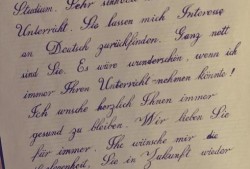 Studium. Sehr sinnvoll
Unterricht. Sie lassen mich Interesse
an Deutsch zurückfinden. Ganz nett
sind Sie. Es wäre wunderschön, wenn ich
immer Ihren Unterricht nehmen könnte!
Ich wnsche herzlich Ihnen immer
gesund zu bleiben. Wir lieben Sie
für immer. Ihe wünsche mir die
Sie in Zukunft wieder